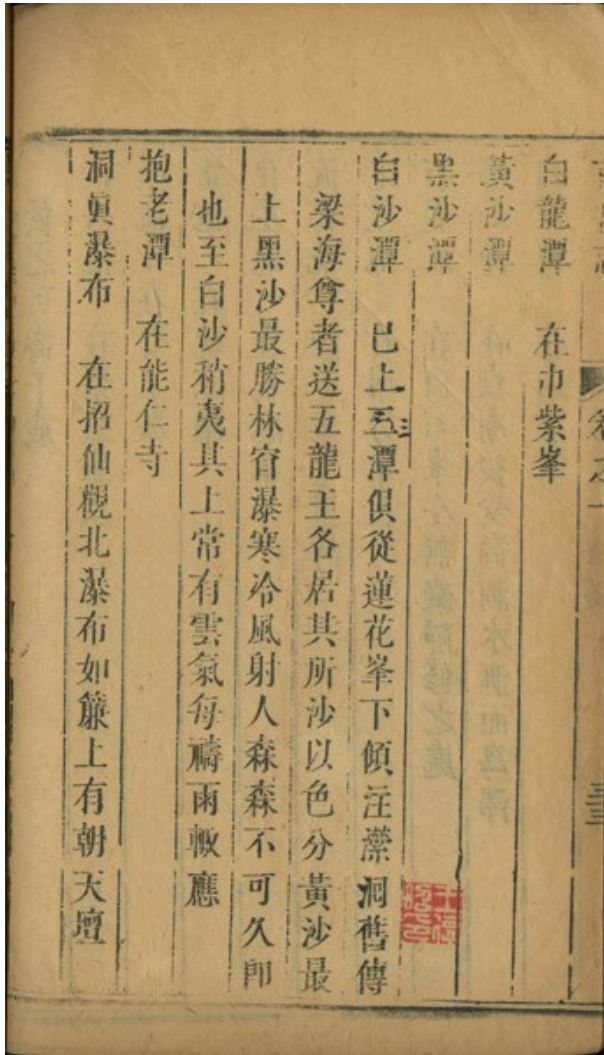 卷之一
三三
白龍潭　在巾紫峯
黃沙潭
黑沙潭
白沙潭　已上三潭俱從蓮花峯下傾注瀠洞舊傳
梁海尊者送五龍王各居其所沙以色分黃沙最
上黑沙最勝林窅瀑寒冷風射人森森不可久卽
也至白沙稍夷其上常有雲氣每禱雨輙應
抱老潭　在能仁寺
洞眞瀑布　在招仙觀北瀑布如簾上有朝天壇